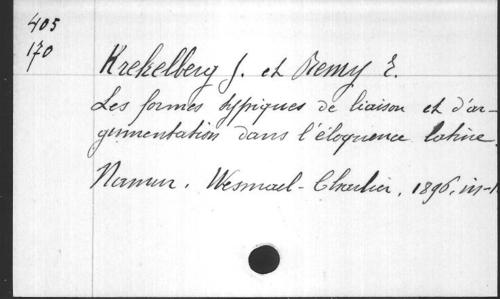 405
170
Krekelberg J. et Remy E.
Les formes typiques de liaison et d'ar-
gumentation dans l'éloquence latine.
Namur. Wesmael-Charlier, 1896, in-